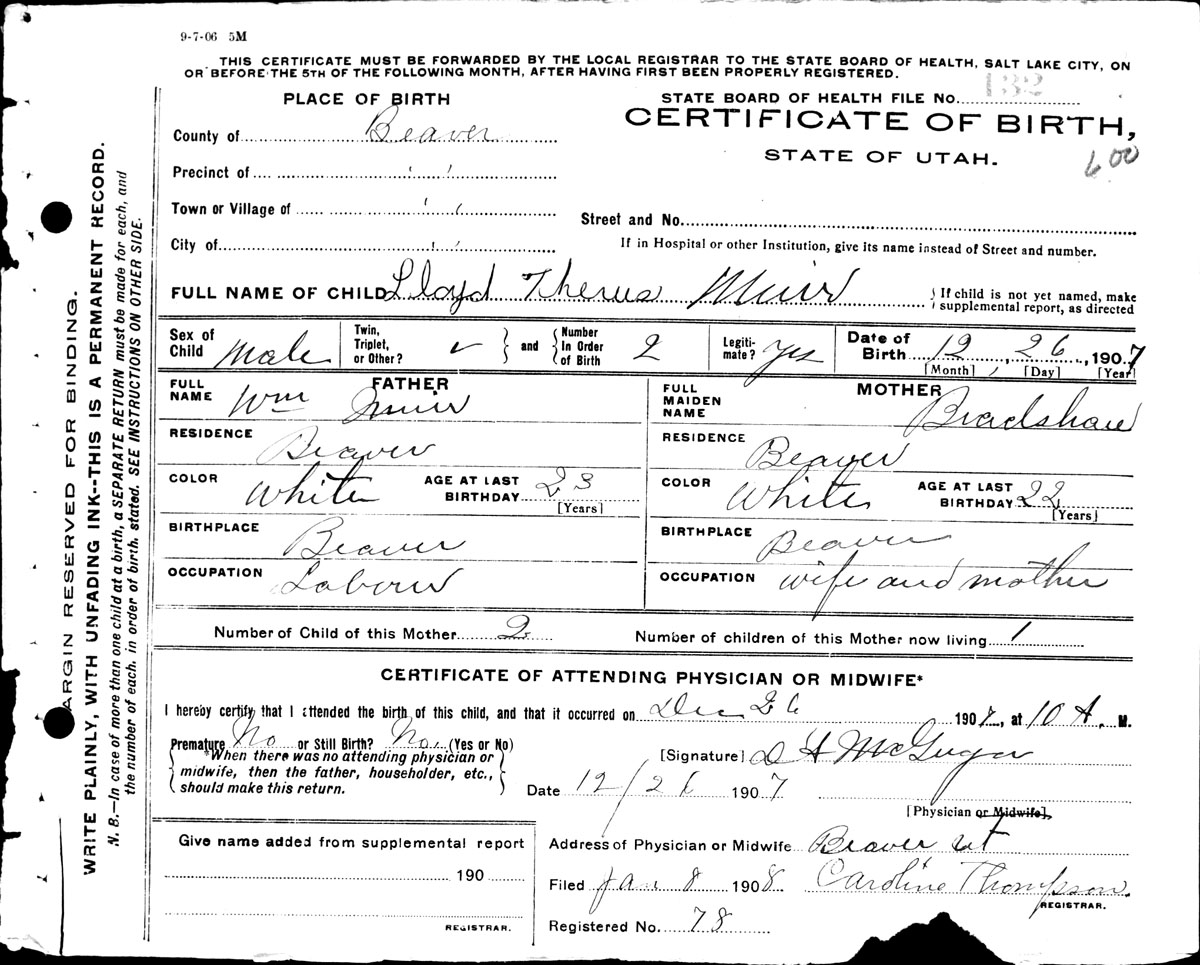 9-7-06 5M
THIS CERTIFICATE MUST BE FORWARDED BY THE LOCAL REGISTRAR TO THE STATE BOARD OF HEALTH, SALT LAKE CITY, ON
OR BEFORE THE 5TH OF THE FOLLOWING MONTH, AFTER HAVING FIRST BEEN PROPERLY REGISTERED.
ARGIN RESERVED FOR BINDING.
WRITE PLAINLY, WITH UNFADING INK--THIS IS A PERMANENT RECORD.
N. B.—In case of more than one child at a birth, a SEPARATE RETURN must be made for each, and
the number of each, in order of birth, stated. SEE INSTRUCTIONS ON OTHER SIDE.
PLACE OF BIRTH
STATE BOARD OF HEALTH FILE No. 132
CERTIFICATE OF BIRTH,
STATE OF UTAH.
600
County of Beaver
Precinct of " "
Town or Village of " "
Street and No.
City of " "
If in Hospital or other Institution, give its name instead of Street and number.
FULL NAME OF CHILD Lloyd Therus Muir
If child is not yet named, make
supplemental report, as directed
Sex of
Child Male
Twin,
Triplet,
or Other? ✓
and
Number
In Order
of Birth 2
Legiti-
mate? Yes
Date of
Birth 12, 26, 1907
[Month] [Day] [Year]
FATHER
FULL
NAME Wm Muir
RESIDENCE Beaver
COLOR White
AGE AT LAST
BIRTHDAY 23
[Years]
BIRTHPLACE Beaver
OCCUPATION Labour
MOTHER
FULL
MAIDEN
NAME Bradshaw
RESIDENCE Beaver
COLOR White
AGE AT LAST
BIRTHDAY 22
[Years]
BIRTHPLACE Beaver
OCCUPATION wife and mother
Number of Child of this Mother 2
Number of children of this Mother now living 1
CERTIFICATE OF ATTENDING PHYSICIAN OR MIDWIFE*
I hereby certify that I attended the birth of this child, and that it occurred on Dec 26 1907, at 10 A. M.
Premature No or Still Birth? No (Yes or No)
*When there was no attending physician or
midwife, then the father, householder, etc.,
should make this return.
[Signature] D A McGregor
Date 12/26 1907
[Physician or Midwife],
Give name added from supplemental report
190
REGISTRAR.
Address of Physician or Midwife Beaver Ut
Filed Jan 8 1908 Caroline Thompson.
REGISTRAR.
Registered No. 78